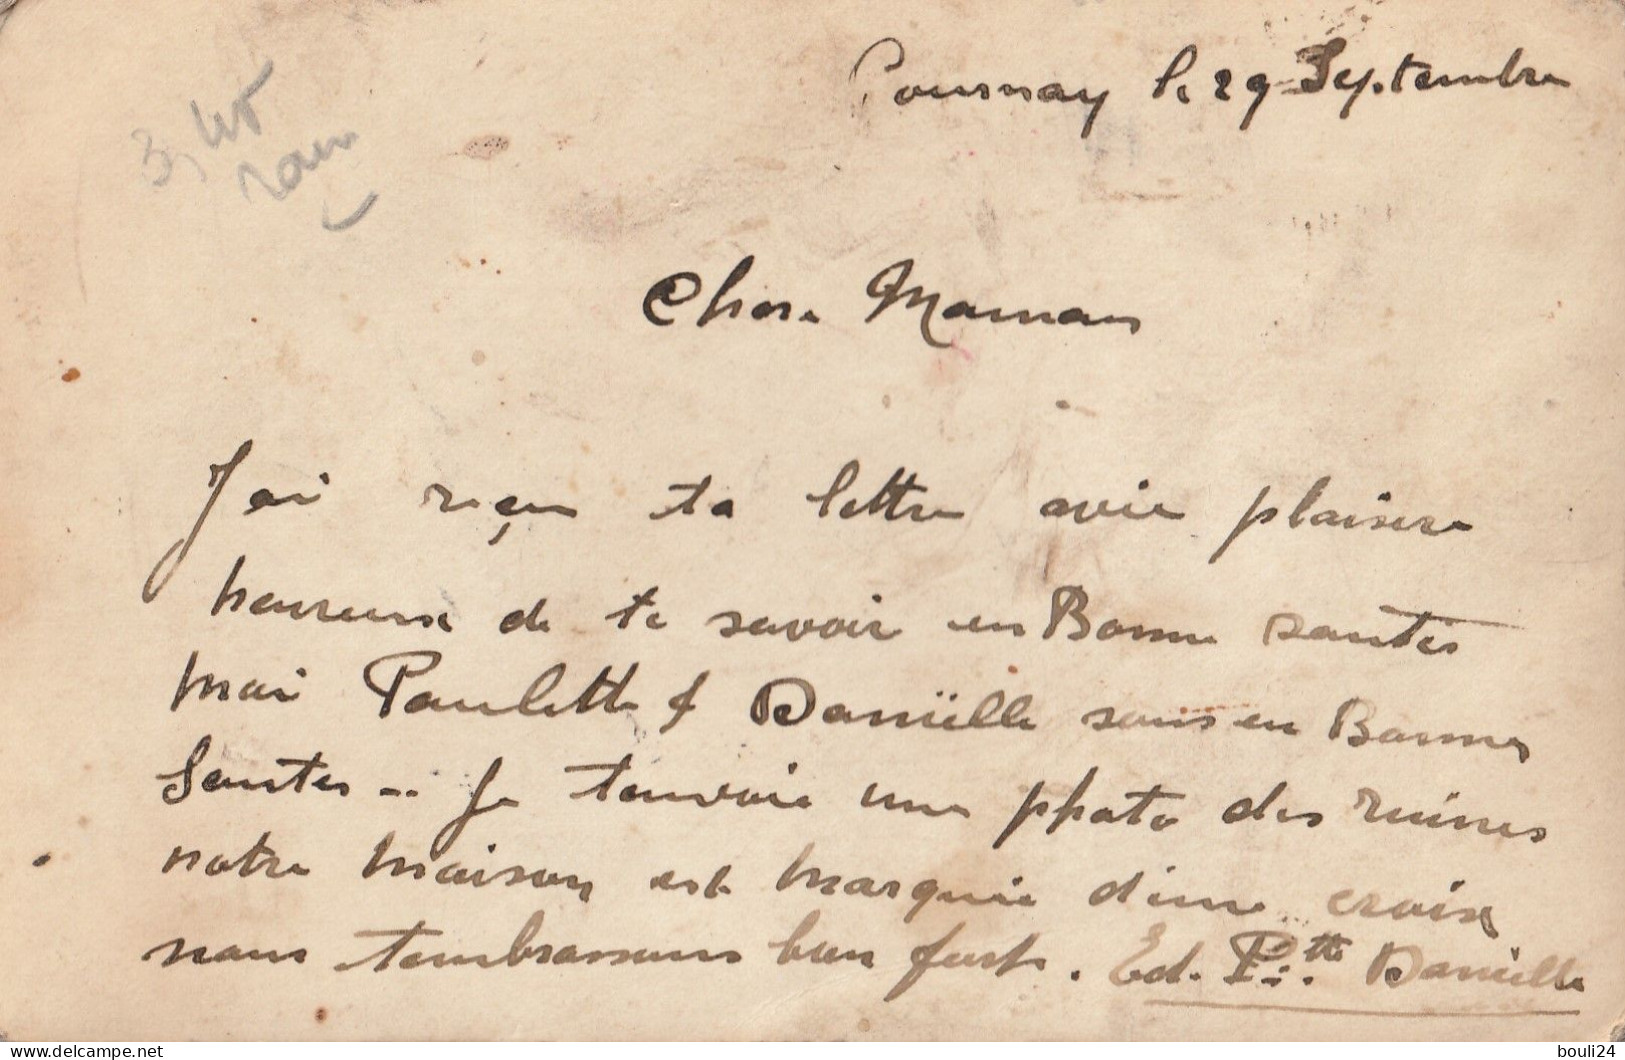 Pournay le 29 Septembre
3,
Chere Maman
J'ai reçu ta lettre avec plaisire
heureuse de te savoir en Bonne santés
moi Paulette & Daniëlle sous en Bonnes
Santes .. Je tenvoie une photo des ruines
notre maison est marquée d'une croix
nous tembrassons bien fort. Ed. P.tte Danielle
delcampe.net
bouli24